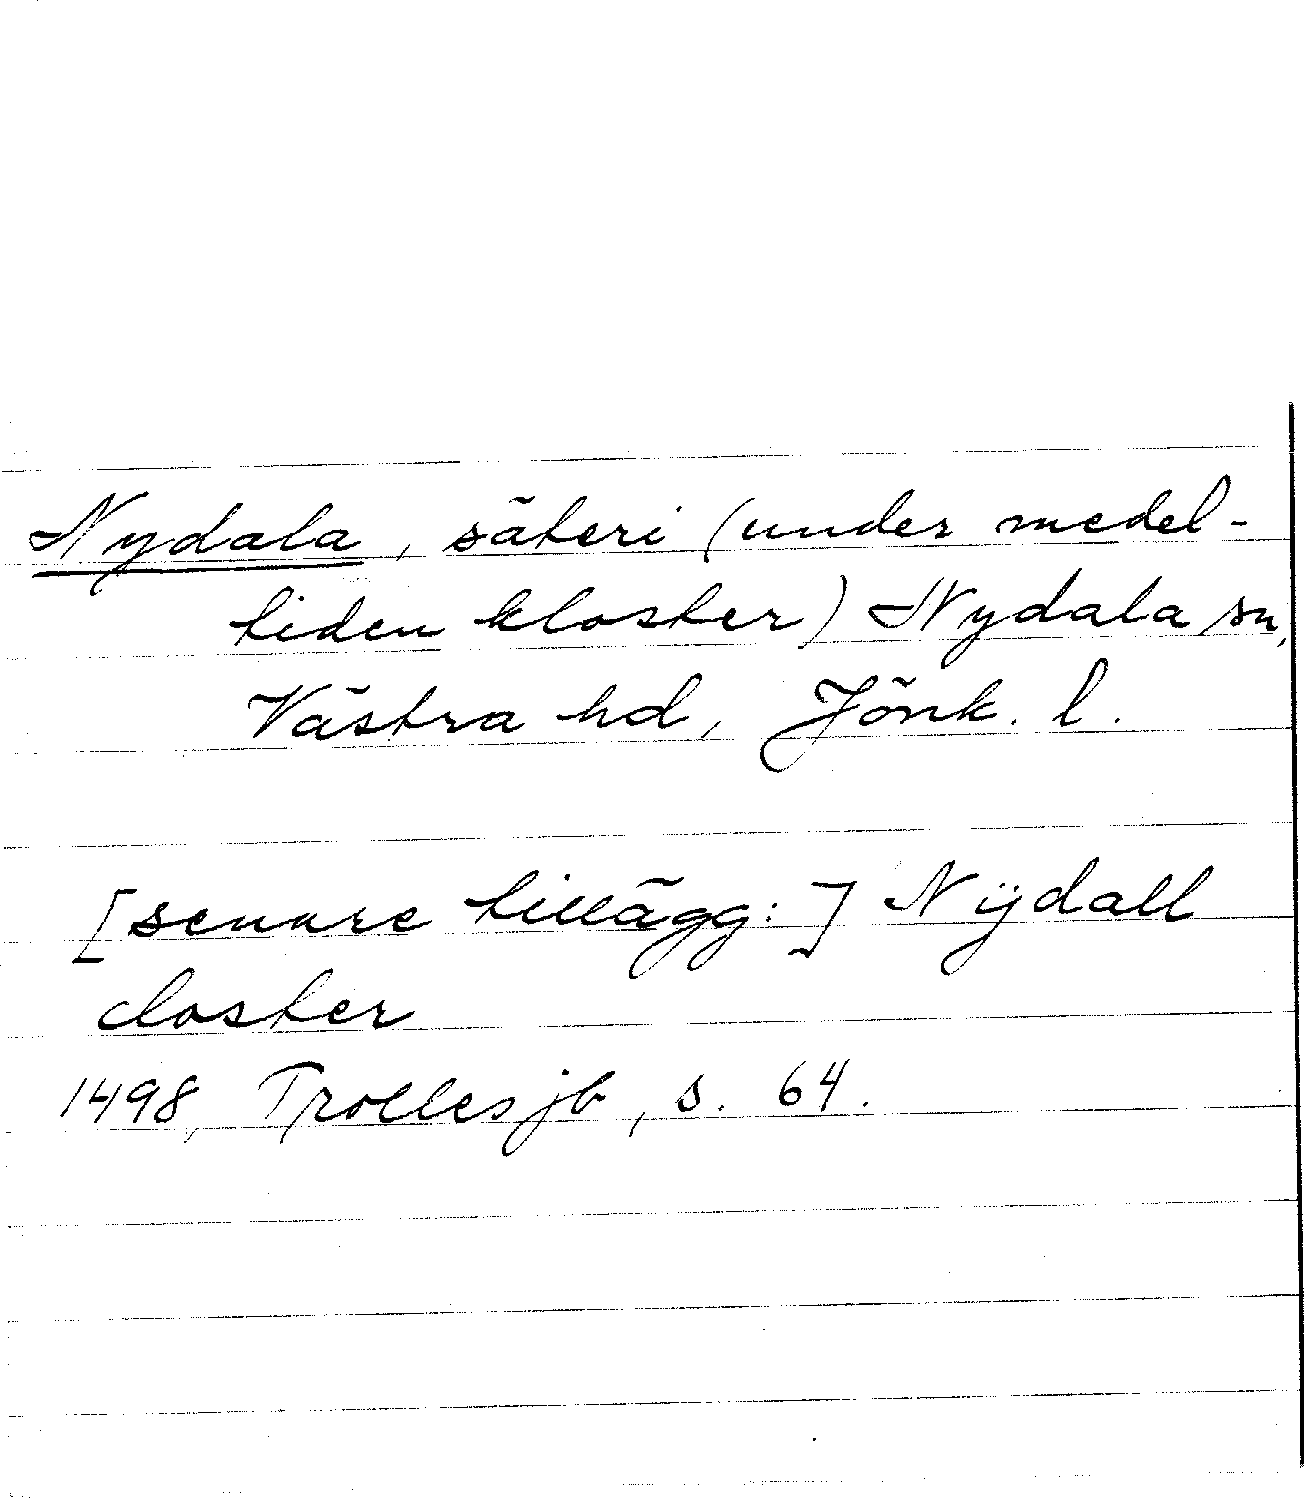 Nydala, säteri (under medel-
tiden kloster) Nydala sn,
Västra hd, Jönk. l.
[senare tillägg:] Nÿdall
closter
1498, Trolles jb, s. 64.